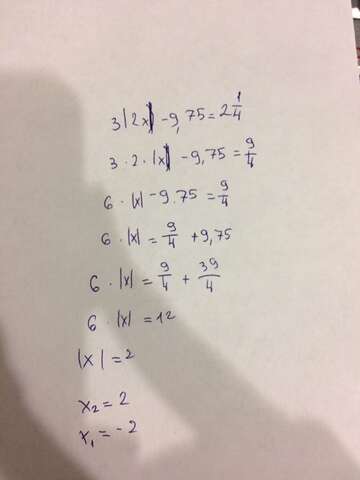 3|2x| - 9,75 = 2 1/4
3 · 2 · |x| - 9,75 = 9/4
6 · |x| - 9.75 = 9/4
6 · |x| = 9/4 + 9,75
6 · |x| = 9/4 + 39/4
6 · |x| = 12
|x| = 2
x₂ = 2
x₁ = -2